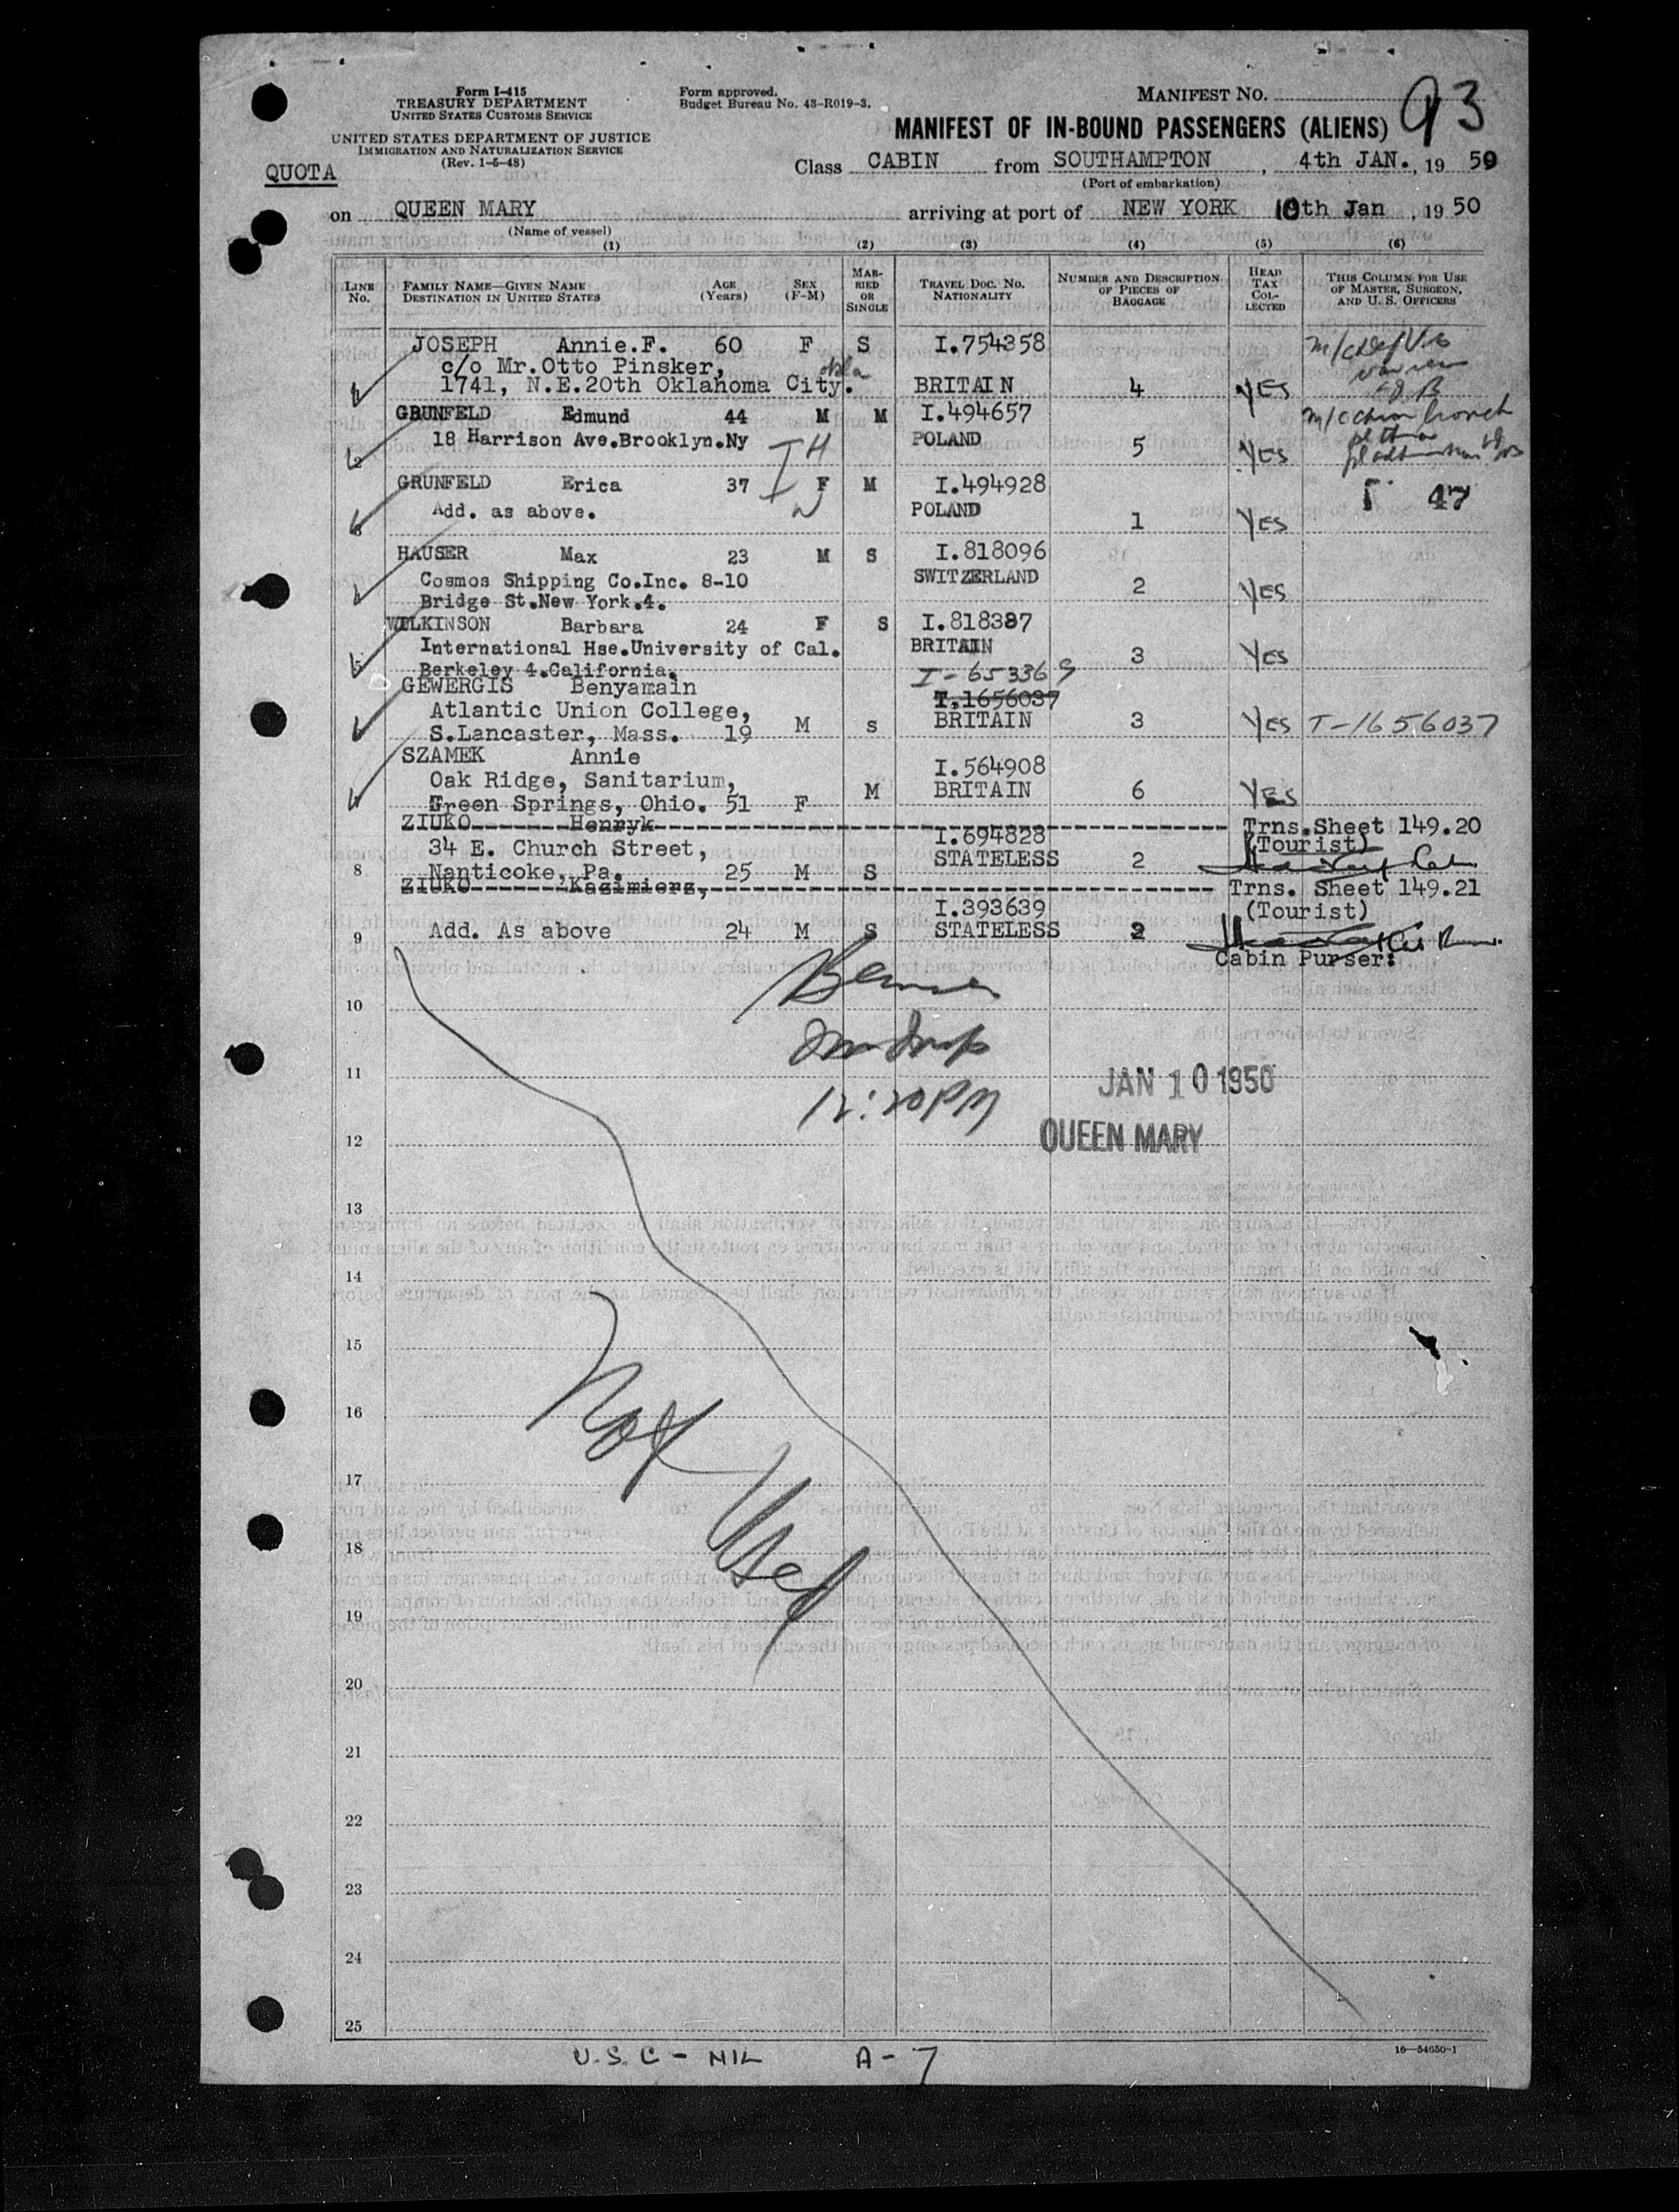 Form I-415
TREASURY DEPARTMENT
UNITED STATES CUSTOMS SERVICE
UNITED STATES DEPARTMENT OF JUSTICE
IMMIGRATION AND NATURALIZATION SERVICE
(Rev. 1-5-48)
QUOTA
Form approved.
Budget Bureau No. 43-R019-3.
MANIFEST NO. 93
MANIFEST OF IN-BOUND PASSENGERS (ALIENS)
Class CABIN from SOUTHAMPTON, 4th JAN., 19 50
(Port of embarkation)
on QUEEN MARY arriving at port of NEW YORK 10th Jan, 19 50
(Name of vessel)
(1) (2) (3) (4) (5) (6)
LINE No. FAMILY NAME—GIVEN NAME DESTINATION IN UNITED STATES AGE (Years) SEX (F-M) MARRIED OR SINGLE TRAVEL DOC. NO. NATIONALITY NUMBER AND DESCRIPTION OF PIECES OF BAGGAGE HEAD TAX COLLECTED THIS COLUMN FOR USE OF MASTER, SURGEON, AND U. S. OFFICERS
JOSEPH Annie.F. 60 F S I.754358
c/o Mr.Otto Pinsker,
1741, N.E.20th Oklahoma City. BRITAIN 4 YES
GRUNFELD Edmund 44 M M I.494657
18 Harrison Ave.Brooklyn.Ny H POLAND 5 YES
GRUNFELD Erica 37 F M I.494928 47
Add. as above. W POLAND 1 YES
3
HAUSER Max 23 M S I.818096
Cosmos Shipping Co.Inc. 8-10 SWITZERLAND 2 YES
Bridge St.New York.4.
WILKINSON Barbara 24 F S I.818387
International Hse.University of Cal. BRITAIN 3 YES
5 Berkeley 4.California.
I-653369
GEWERGIS Benyamain T.1656037
Atlantic Union College, BRITAIN 3 YES T-1656037
S.Lancaster, Mass. 19 M s
SZAMEK Annie I.564908
Oak Ridge, Sanitarium, M BRITAIN 6 YES
Green Springs, Ohio. 51 F
ZIUKO Henryk Trns.Sheet 149.20
I.694828 (Tourist)
34 E. Church Street, STATELESS 2
8 Nanticoke, Pa. 25 M S
ZIUKO Kazimierz, Trns. Sheet 149.21
I.393639 (Tourist)
9 Add. As above 24 M S STATELESS 2
Cabin Purser:
10
11
12:20 PM
JAN 10 1950
12
QUEEN MARY
13
14
15
16
Not Used
17
18
19
20
21
22
23
24
25
U.S.C - NIL A-7
16—54650-1